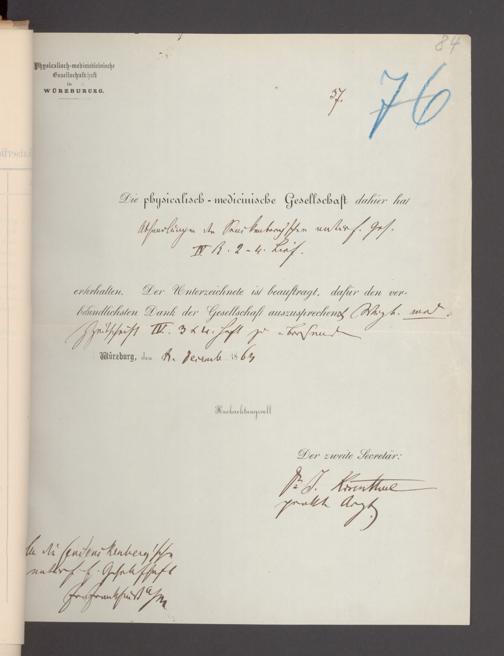 84
Physicalisch-medicinische
Gesellschaft
in
WÜRZBURG.
37.
76
Die physicalisch-medicinische Gesellschaft dahier hat
Abhandlungen der Senckenbergischen naturf. Ges.
IV B. 2-4. Lief.
erhalten. Der Unterzeichnete ist beauftragt, dafür den ver-
bindlichsten Dank der Gesellschaft auszusprechen & Würzb. med.
Zeitschrift IV. 3 & 4. Heft zu übersenden
Würzburg, den Decemb. 1863
Hochachtungsvoll
Der zweite Secretär:
Dr. J. Rosenthal
prakt. Arzt
An die Senckenbergische
naturf. Gesellschaft
Frankfurt a/M